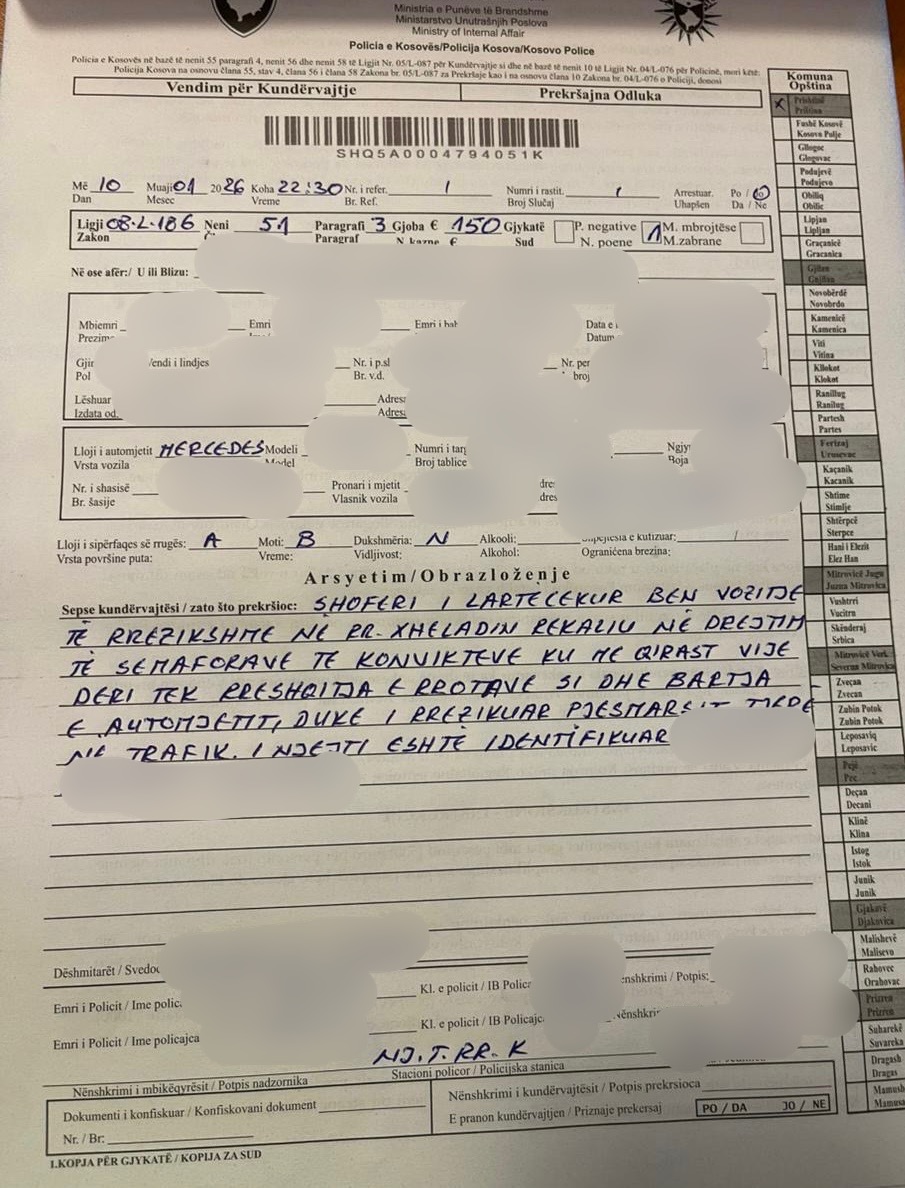 Ministria e Punëve të Brendshme
Ministarstvo Unutrašnjih Poslova
Ministry of Internal Affair
Policia e Kosovës/Policija Kosova/Kosovo Police
Policia e Kosovës në bazë të nenit 55 paragrafi 4, nenit 56 dhe nenit 58 të Ligjit Nr. 05/L-087 për Kundërvajtje si dhe në bazë të nenit 10 të Ligjit Nr. 04/L-076 për Policinë, mori këtë:
Policija Kosova na osnovu člana 55, stav 4, člana 56 i člana 58 Zakona br. 05/L-087 za Prekršaje kao i na osnovu člana 10 Zakona br. 04/L-076 o Policiji, donosi
Vendim për Kundërvajtje Prekršajna Odluka
SHQ5A0004794051K
Më 10 Muaji 01 2026 Koha 22:30 Nr. i refer. / Numri i rastit. / Arrestuar. Po / Jo
Dan Mesec Vreme Br. Ref. Broj Slučaj Uhapšen Da / Ne
Ligji 08-L-186 Neni 51 Paragrafi 3 Gjoba € 150 Gjykatë P. negative 1 M. mbrojtëse
Zakon Paragraf Sud N. poene M.zabrane
Në ose afër:/ U ili Blizu:
Mbiemri Emri Data e
Datum
Vendi i lindjes Nr. i
Pol Br. v.d. broj
Lëshuar
Izdata od.
Lloji i automjetit MERCEDES Modeli Numri i
Vrsta vozila Broj tablice Boja
Nr. i shasisë Pronari i mjetit
Br. šasije Vlasnik vozila
Lloji i sipërfaqes së rrugës: A Moti: B Dukshmëria: N Alkooli: /
Vrsta površine puta: Vreme: Vidljivost: Alkohol: Ograničena brezina:
Arsyetim/Obrazloženje
Sepse kundërvajtësi / zato što prekršioc: SHOFERI I LARTECEKUR BEN VOZITJE
TË RREZIKSHME NË RR. XHELADIN REKALIU NË DREJTIM
TË SEMAFORAVE TË KONVIKTEVE KU ME QIRAST VIJE
DERI TEK RRESHQITJA E RROTAVE SI DHE BARTJA
E AUTOMJETIT, DUKE I RREZIKUAR PJESMARSIT TJERË
NË TRAFIK. I NJEJTI ESHTË IDENTIFIKUAR
Dëshmitarët / Svedoc
Emri i Policit / Ime polic. Kl. e policit / IB Polic
Emri i Policit / Ime policajca Kl. e policit / IB Policajc
NJ.T.RR.K
Nënshkrimi i mbikëqyrësit / Potpis nadzornika Stacioni policor / Policijska stanica
Dokumenti i konfiskuar / Konfiskovani dokument Nënshkrimi i kundërvajtësit / Potpis prekrsioca
Nr. / Br: E pranon kundërvajtjen / Priznaje prekersaj PO / DA JO / NE
1.KOPJA PËR GJYKATË / KOPIJA ZA SUD
Komuna
Opština
X Prishtinë
Priština
Fushë Kosovë
Kosovo Polje
Gllogoc
Glogovac
Podujevë
Podujevo
Obiliq
Obilic
Lipjan
Lipljan
Graçanicë
Gracanica
Gjilan
Gnjilan
Novobërdë
Novobrdo
Kamenicë
Kamenica
Viti
Vitina
Kllokot
Klokot
Ranillug
Ranilug
Partesh
Partes
Ferizaj
Urosevac
Kaçanik
Kacanik
Shtime
Stimlje
Shtërpcë
Sterpce
Hani i Elezit
Elez Han
Mitrovicë Jugu
Juzna Mitrovica
Vushtrri
Vucitrn
Skënderaj
Srbica
Mitrovicë Veri
Severna Mitrovica
Zveçan
Zvecan
Zubin Potok
Zubin Potok
Leposaviq
Leposavic
Pejë
Pec
Deçan
Decani
Klinë
Klina
Istog
Istok
Junik
Junik
Gjakovë
Djakovica
Malishevë
Malisevo
Rahovec
Orahovac
Prizren
Prizren
Suharekë
Suvareka
Dragash
Dragas
Mamush
Mamusa